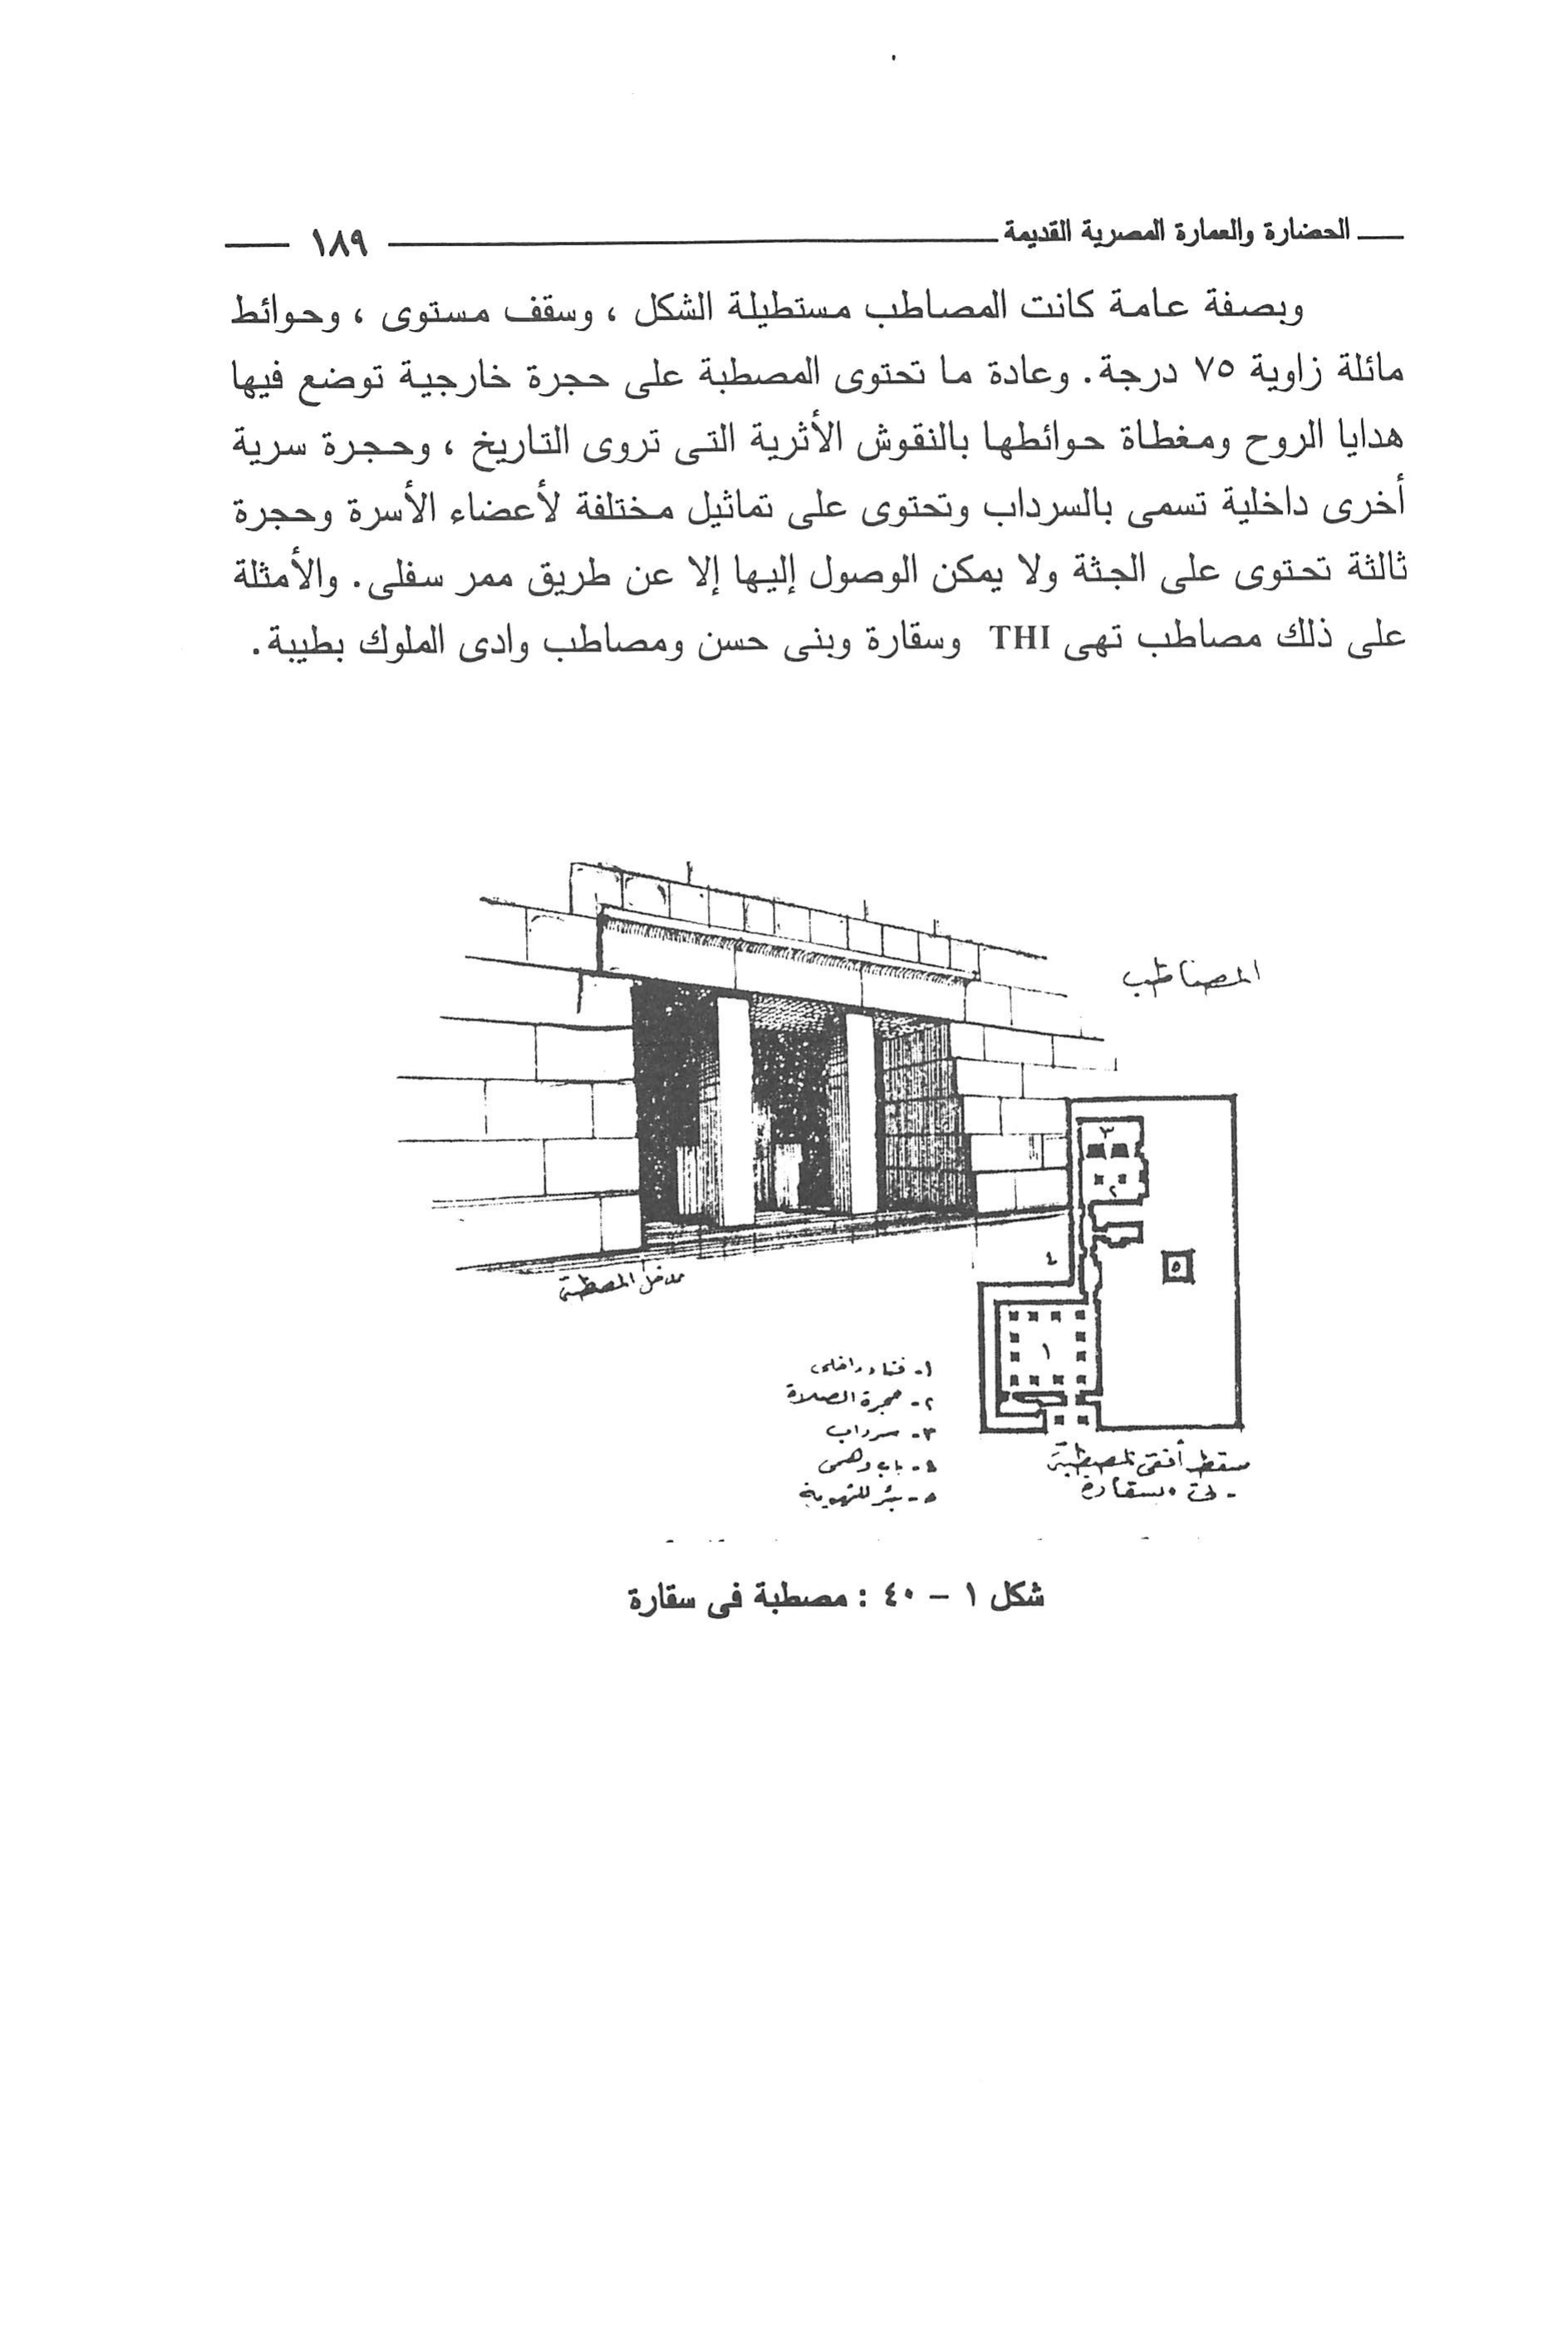 الحضارة والعمارة المصرية القديمة ١٨٩
وبصفة عامة كانت المصاطب مستطيلة الشكل ، وسقف مستوى ، وحوائط
مائلة زاوية ٧٥ درجة. وعادة ما تحتوى المصطبة على حجرة خارجية توضع فيها
هدايا الروح ومغطاة حوائطها بالنقوش الأثرية التى تروى التاريخ ، وحجرة سرية
أخرى داخلية تسمى بالسرداب وتحتوى على تماثيل مختلفة لأعضاء الأسرة وحجرة
ثالثة تحتوى على الجثة ولا يمكن الوصول إليها إلا عن طريق ممر سفلى. والأمثلة
على ذلك مصاطب تهى THI وسقارة وبنى حسن ومصاطب وادى الملوك بطيبة.
المصاطب
٣
٢
٤
٥
١
مدخل المصطبة
١- فناء داخلى
٢- حجرة الصلاة
٣- سرداب
٤- باب وهمى
٥- بئر للتهوية
مسقط أفقى لمصطبة
بسقارة
شكل ١ – ٤٠ : مصطبة فى سقارة